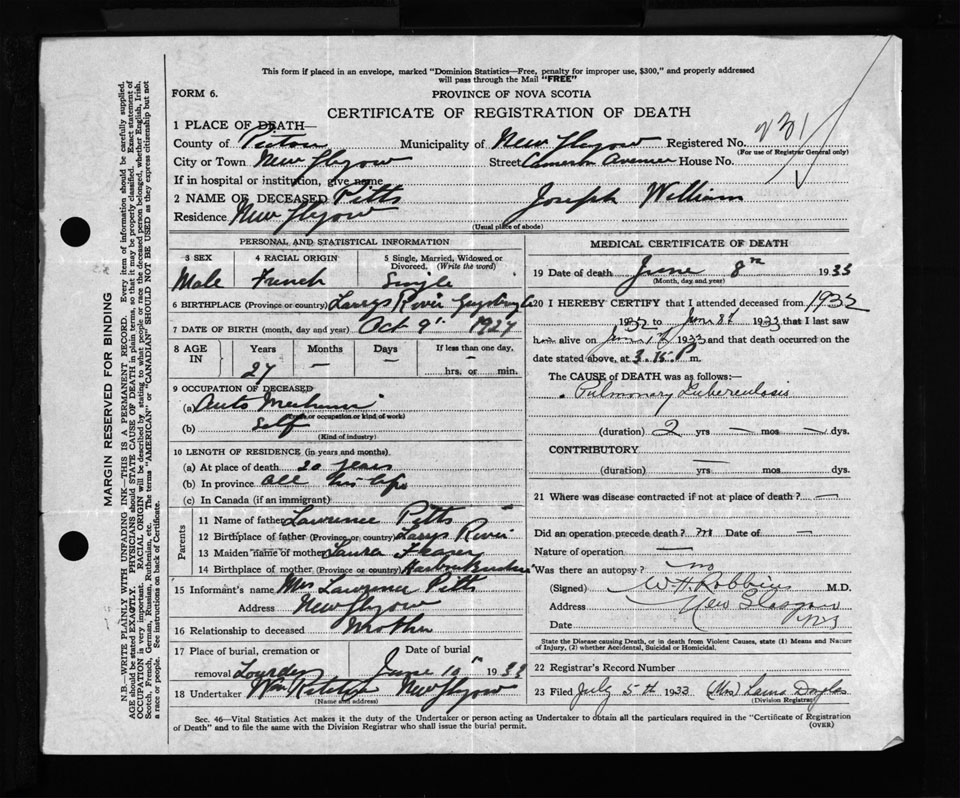 This form if placed in an envelope, marked "Dominion Statistics—Free, penalty for improper use, $300," and properly addressed
will pass through the Mail "FREE"
FORM 6.
PROVINCE OF NOVA SCOTIA
CERTIFICATE OF REGISTRATION OF DEATH
1 PLACE OF DEATH—
County of Pictou Municipality of New Glasgow Registered No. 231
(For use of Registrar General only)
City or Town New Glasgow Street Cameron Avenue House No.
If in hospital or institution, give name
2 NAME OF DECEASED Pitts Joseph William
Residence New Glasgow
(Usual place of abode)
PERSONAL AND STATISTICAL INFORMATION
3 SEX 4 RACIAL ORIGIN 5 Single, Married, Widowed or Divorced. (Write the word)
Male French Single
6 BIRTHPLACE (Province or country) Larrys River
7 DATE OF BIRTH (month, day and year) Oct 9th
8 AGE IN Years Months Days If less than one day,
27 — — hrs. or min.
9 OCCUPATION OF DECEASED
(a) Auto Mechanic
(Trade or occupation or kind of work)
(b) Self
(Kind of industry)
10 LENGTH OF RESIDENCE (in years and months).
(a) At place of death 20 years
(b) In province all his life
(c) In Canada (if an immigrant)
Parents
11 Name of father Lawrence Pitts
12 Birthplace of father (Province or country) Larrys River
13 Maiden name of mother Laura
14 Birthplace of mother (Province or country)
15 Informant's name Mrs Lawrence Pitts
Address New Glasgow
16 Relationship to deceased Mother
17 Place of burial, cremation or Date of burial
removal Lourdes June 10th 1933
18 Undertaker New Glasgow
(Name and address)
MEDICAL CERTIFICATE OF DEATH
19 Date of death June 8th 1933
(Month, day and year)
20 I HEREBY CERTIFY that I attended deceased from 1932
1932 to June 8th 1933 that I last saw
him alive on June 1933 and that death occurred on the
date stated above, at 3.15 P m.
The CAUSE of DEATH was as follows:—
Pulmonary Tuberculosis
(duration) 2 yrs — mos — dys.
CONTRIBUTORY
(duration) — yrs mos. dys.
21 Where was disease contracted if not at place of death? —
Did an operation precede death? Date of —
Nature of operation —
Was there an autopsy? no
(Signed) W H Robbins M.D.
Address New Glasgow
Date NS
State the Disease causing Death, or in death from Violent Causes, state (1) Means and Nature
of Injury, (2) whether Accidental, Suicidal or Homicidal.
22 Registrar's Record Number
23 Filed July 5th 1933 (Mrs) Lena Douglas
(Division Registrar)
Sec. 46—Vital Statistics Act makes it the duty of the Undertaker or person acting as Undertaker to obtain all the particulars required in the "Certificate of Registration
of Death" and to file the same with the Division Registrar who shall issue the burial permit.
(OVER)
MARGIN RESERVED FOR BINDING
N.B.—WRITE PLAINLY WITH UNFADING INK—THIS IS A PERMANENT RECORD. Every item of information should be carefully supplied.
AGE should be stated EXACTLY. PHYSICIANS should STATE CAUSE OF DEATH in plain terms, so that it may be properly classified. Exact statement of
OCCUPATION is very important. RACIAL ORIGIN will be described by stating to what people or race the deceased person belonged, whether English, Irish,
Scotch, French, German, Russian, Ruthenian, etc. The terms "AMERICAN" or "CANADIAN" SHOULD NOT BE USED as they express citizenship but not
a race or people. See instructions on back of Certificate.